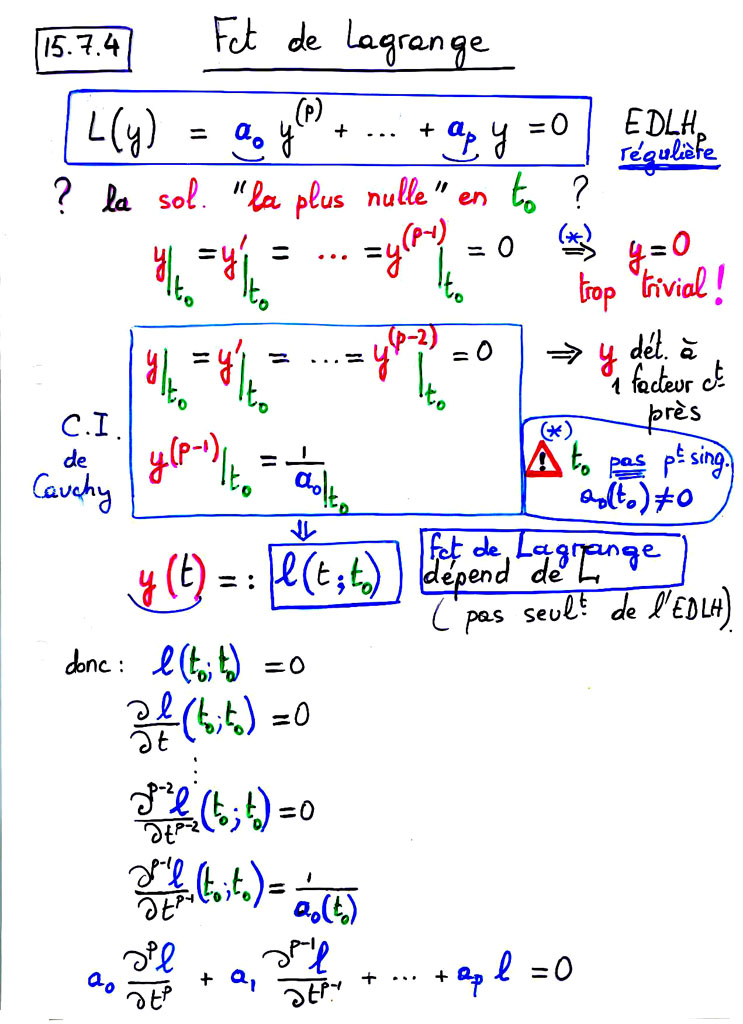 15.7.4 Fct de Lagrange
L(y) = a₀ y⁽ᵖ⁾ + ... + aₚ y = 0 EDLHₚ
régulière
? la sol. "la plus nulle" en t₀ ?
y|t₀ = y'|t₀ = ... = y⁽ᵖ⁻¹⁾|t₀ = 0 (*)⇒ y = 0
trop trivial !
y|t₀ = y'|t₀ = ... = y⁽ᵖ⁻²⁾|t₀ = 0 ⇒ y dét. à
1 facteur cᵗ
près
C.I.
de
Cauchy
y⁽ᵖ⁻¹⁾|t₀ = 1/a₀|t₀
(*)
! t₀ pas pᵗ sing.
a₀(t₀) ≠ 0
⇓
y(t) =: l(t; t₀)
Fct de Lagrange
dépend de L
(pas seulᵗ de l'EDLH)
donc : l(t₀; t₀) = 0
∂l/∂t (t₀; t₀) = 0
⋮
∂ᵖ⁻²l/∂tᵖ⁻² (t₀; t₀) = 0
∂ᵖ⁻¹l/∂tᵖ⁻¹ (t₀; t₀) = 1/a₀(t₀)
a₀ ∂ᵖl/∂tᵖ + a₁ ∂ᵖ⁻¹l/∂tᵖ⁻¹ + ... + aₚ l = 0